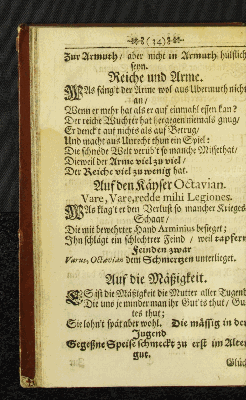 (14)
Zur Armuth / aber nicht in Armuth hülflich
seyn.
Reiche und Arme.
WAs fäng't der Arme wol aus Ubermuth nicht
an /
Wenn er mehr hat als er auf einmahl essen kan?
Der reiche Wuchrer hat hergegen niemals gnug /
Er denckt auf nichts als auf Betrug /
Und macht aus Unrecht ihm ein Spiel:
Die schnöde Welt verüb't so manche Missethat /
Dieweil der Arme viel zu viel /
Der Reiche viel zu wenig hat.
Auf den Käyser Octavian.
Vare, Vare, redde mihi Legiones.
WAs klag't er den Verlust so mancher Krieges-
Schaar /
Die mit bewehrter Hand Arminius besieget;
Ihn schlägt ein schlechter Feind / weil tapfern
Feinden zwar
Varus, Octavian dem Schmertzen unterlieget.
Auf die Mäßigkeit.
ES ist die Mäßigkeit die Mutter aller Tugend
Die uns je minder man ihr Gut's thut / Gu-
tes thut;
Sie lohn't spät aber wohl. Die mässig in der
Jugend
Gegeßne Speise schmeckt zu erst im Alter
gut.
Glück